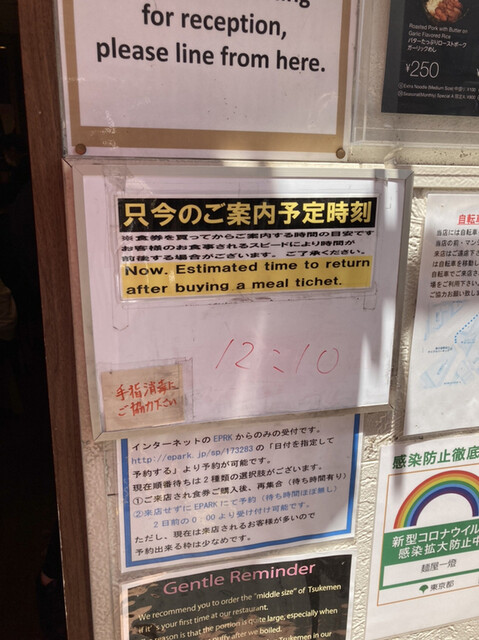 for reception,
please line from here.
Roasted Pork with Butter on
Garlic Flavored Rice
バターたっぷりローストポーク
ガーリックめし
¥250
只今のご案内予定時刻
※食券を買ってからご案内する時間の目安です
お客様のお食事されるスピードにより時間が
前後する場合がございます。ご了承ください。
Now. Estimated time to return
after buying a meal tichet.
12:10
手指消毒に
ご協力下さい
自転車
当店には自転車
当店の前・マンシ
来店はご遠慮下さ
は自転車を移動し
自転車でご来店さ
場をご利用下さい。
ご協力お願い致しま
インターネットのEPRKからのみの受付です。
http://epark.jp/sp/173283の「日付を指定して
予約する」より予約が可能です。
現在順番待ちは2種類の選択肢がございます。
①ご来店され食券ご購入後、再集合（待ち時間有り）
②来店せずにEPARKにて予約（待ち時間ほぼ無し）
2日前の0:00より受け付け可能です。
ただし、現在は来店されるお客様が多いので
予約出来る枠は少なめです。
感染防止徹底
新型コロナウイル
感染拡大防止中
麺屋一燈
東京都
Gentle Reminder
We recommend you to order the "middle size" of Tsukemen
if it's your first time at our restaurant.
reason is that the portion is quite large, especially when
puffy after we boiled.
Tsukemen in our